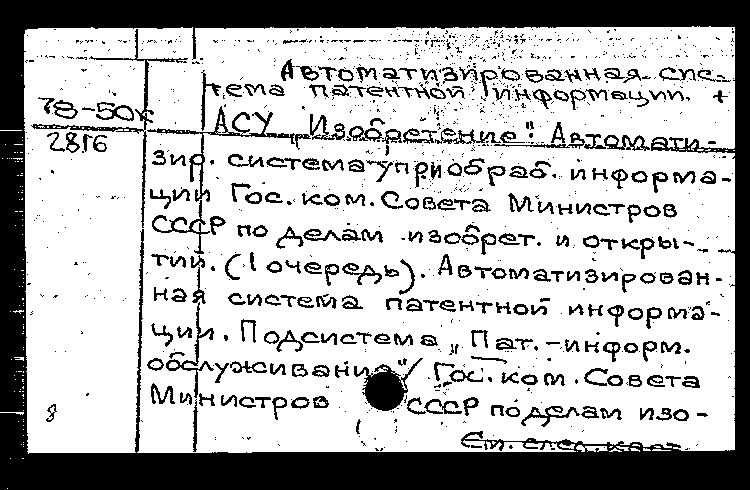 Автоматизированная сис-
тема патентной информации. +
78-50к
АСУ „Изобретение“: Автомати-
2816
зир. система упр и обраб. информа-
ции Гос. ком. Совета Министров
СССР по делам изобрет. и откры-
тий. (1 очередь). Автоматизирован-
ная система патентной информа-
ции. Подсистема „Пат.-информ.
обслуживание“/ Гос. ком. Совета
Министров СССР по делам изо-
См. след. карт.